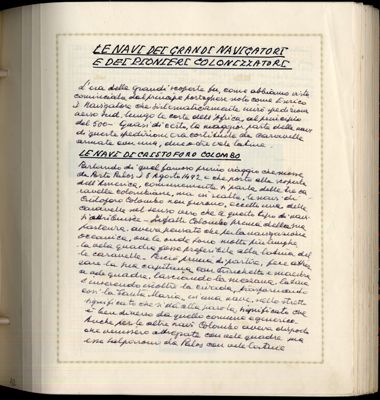 LE NAVI DEI GRANDI NAVIGATORI
E DEI PIONIERI COLONIZZATORI
L'era delle grandi scoperte fu, come abbiamo visto
cominciata dal principe portoghese noto come Enrico
il Navigatore che sistematicamente inviò spedizioni
verso sud, lungo le coste dell'Africa, al principio
del 500- Quasi di certo, la maggior parte delle navi
di queste spedizioni era costituita da caravelle
armate con una, due o tre vele latine
LE NAVI DI CRISTOFORO COLOMBO
Parlando di quel famoso primo viaggio che mosse
da Porto Palos il 3 Agosto 1492 e che portò alla scoperta
dell'America, comunemente si parla delle tre ca
ravelle colombiane, ma in realtà, le navi di
Cristoforo Colombo non furono, eccetto una delle
caravelle nel senso vero che a questo tipo di navi
si attribuisce - Infatti Colombo prima della sua
partenza, aveva pensato che per la navigazione
oceanica, ove le onde sono molto più lunghe
la vela quadra fosse preferibile alla latina del
le caravelle. Perciò prima di partire, fece attrez
zare la sua capitana con trinchetto e maestra
a vele quadre, lasciando la mezzana latina
e inserendo inoltre la civada, trasformando
così la Santa Maria, in una nave, nello stretto
significato che si dà alla parola, significato che
è ben diverso da quello comune e generico.
Anche per le altre navi Colombo aveva disposto
che venissero attrezzate con vele quadre, ma
esse salparono da Palos con vele latine